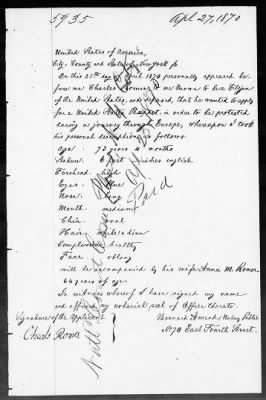 5935
Apl 27, 1870
United States of America,
City, County and State of New York ss
On this 25th day of April 1870 personally appeared be-
fore me Charles to me known to be a Citizen
of the United States, who deposed, that he wanted to apply
for a United States Passport, in order to be protected
during a journey through Europe, whereupon I took
his personal description as follows.
Age : 73 years 4 months
Stature 6 feet inches english
Forehead
Eyes : blue
Nose : long
Mouth medium
Chin oval
Hair white & thin
Complexion healthy
Face oblong
will be accompanied by his wife Anna M.
64 years of age
In witness whereof I have signed my name
and affixed my notarial seal of Office thereto
Signature of the Applicant Bernard Amend Notary Public
Charles No 70 East Fourth Street.
Paid